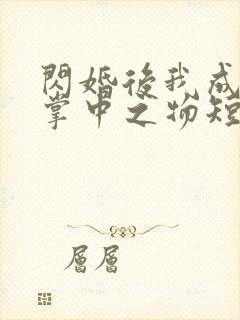 閃婚後我成
掌中之物短
層層